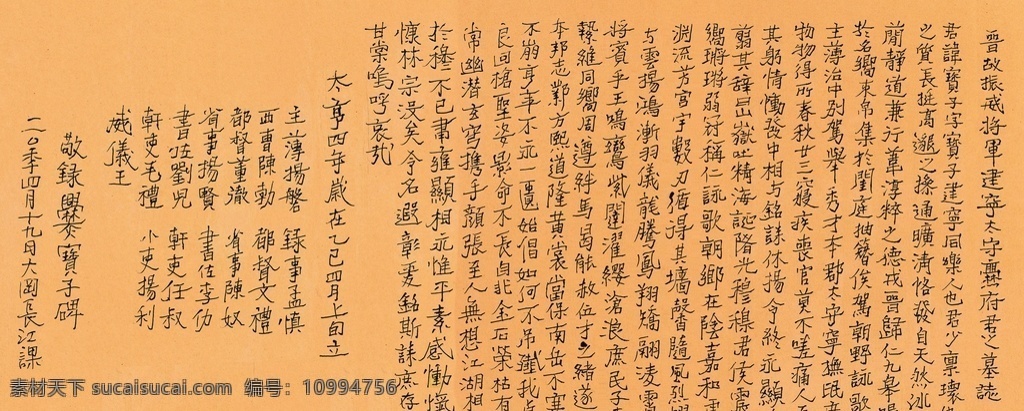 晉故振威將軍建寧太守爨府君之墓誌
君諱寶子字寶子建寧同樂人也君少稟瓌
之質長挺高邈之操通曠清恪發自天然冰
簡靜道兼行葦淳粹之德戎晉歸仁九皋唱
於名嚮束帛集於閨庭抽簪俟駕朝野詠歌
主薄治中別駕舉秀才本郡太守寧撫氓庶
物物得所春秋廿三寢疾喪官莫不嗟痛人百
其躬情慟發中相与銘誄休揚令終永顯
翦其辭曰嶽吐精海誕陼光穆穆君侯震
嚮鏘鏘弱冠稱仁詠歌朝鄉在陰嘉和處
淵流芳宮宇數刃循得其墻馨隨風烈耀
与雲揚鴻漸羽儀龍騰鳳翔矯翮凌霄
將賓乎王鳴鸞紫闥濯纓滄浪庶民子
縶維同嚮周遵絆馬曷能赦位才之緒遂
本邦志鄴方熙道隆黃裳當保南岳不騫
不崩享年不永一匱始倡如何不吊殲我貞
良回抱聖姿影命不長自非金石榮枯有
常幽潛玄穹攜手顏張至人無想江湖相
於穆不已肅雍顯相永惟平素感慟愾
慷林宗沒矣令名遐彰爰銘斯誄庶存
甘棠嗚呼哀哉
太亨四年歲在乙巳四月上旬立
主薄揚磐 錄事孟慎
西曹陳勃 都督文禮
都督董澈 省事陳奴
省事揚賢 書佐李仂
書佐劉兒 軒吏任叔
軒吏毛禮 小吏揚利
威儀王
敬錄爨寶子碑
二〇年四月十九日大岡長江課
素材天下 sucaisucai.com 编号：10994756